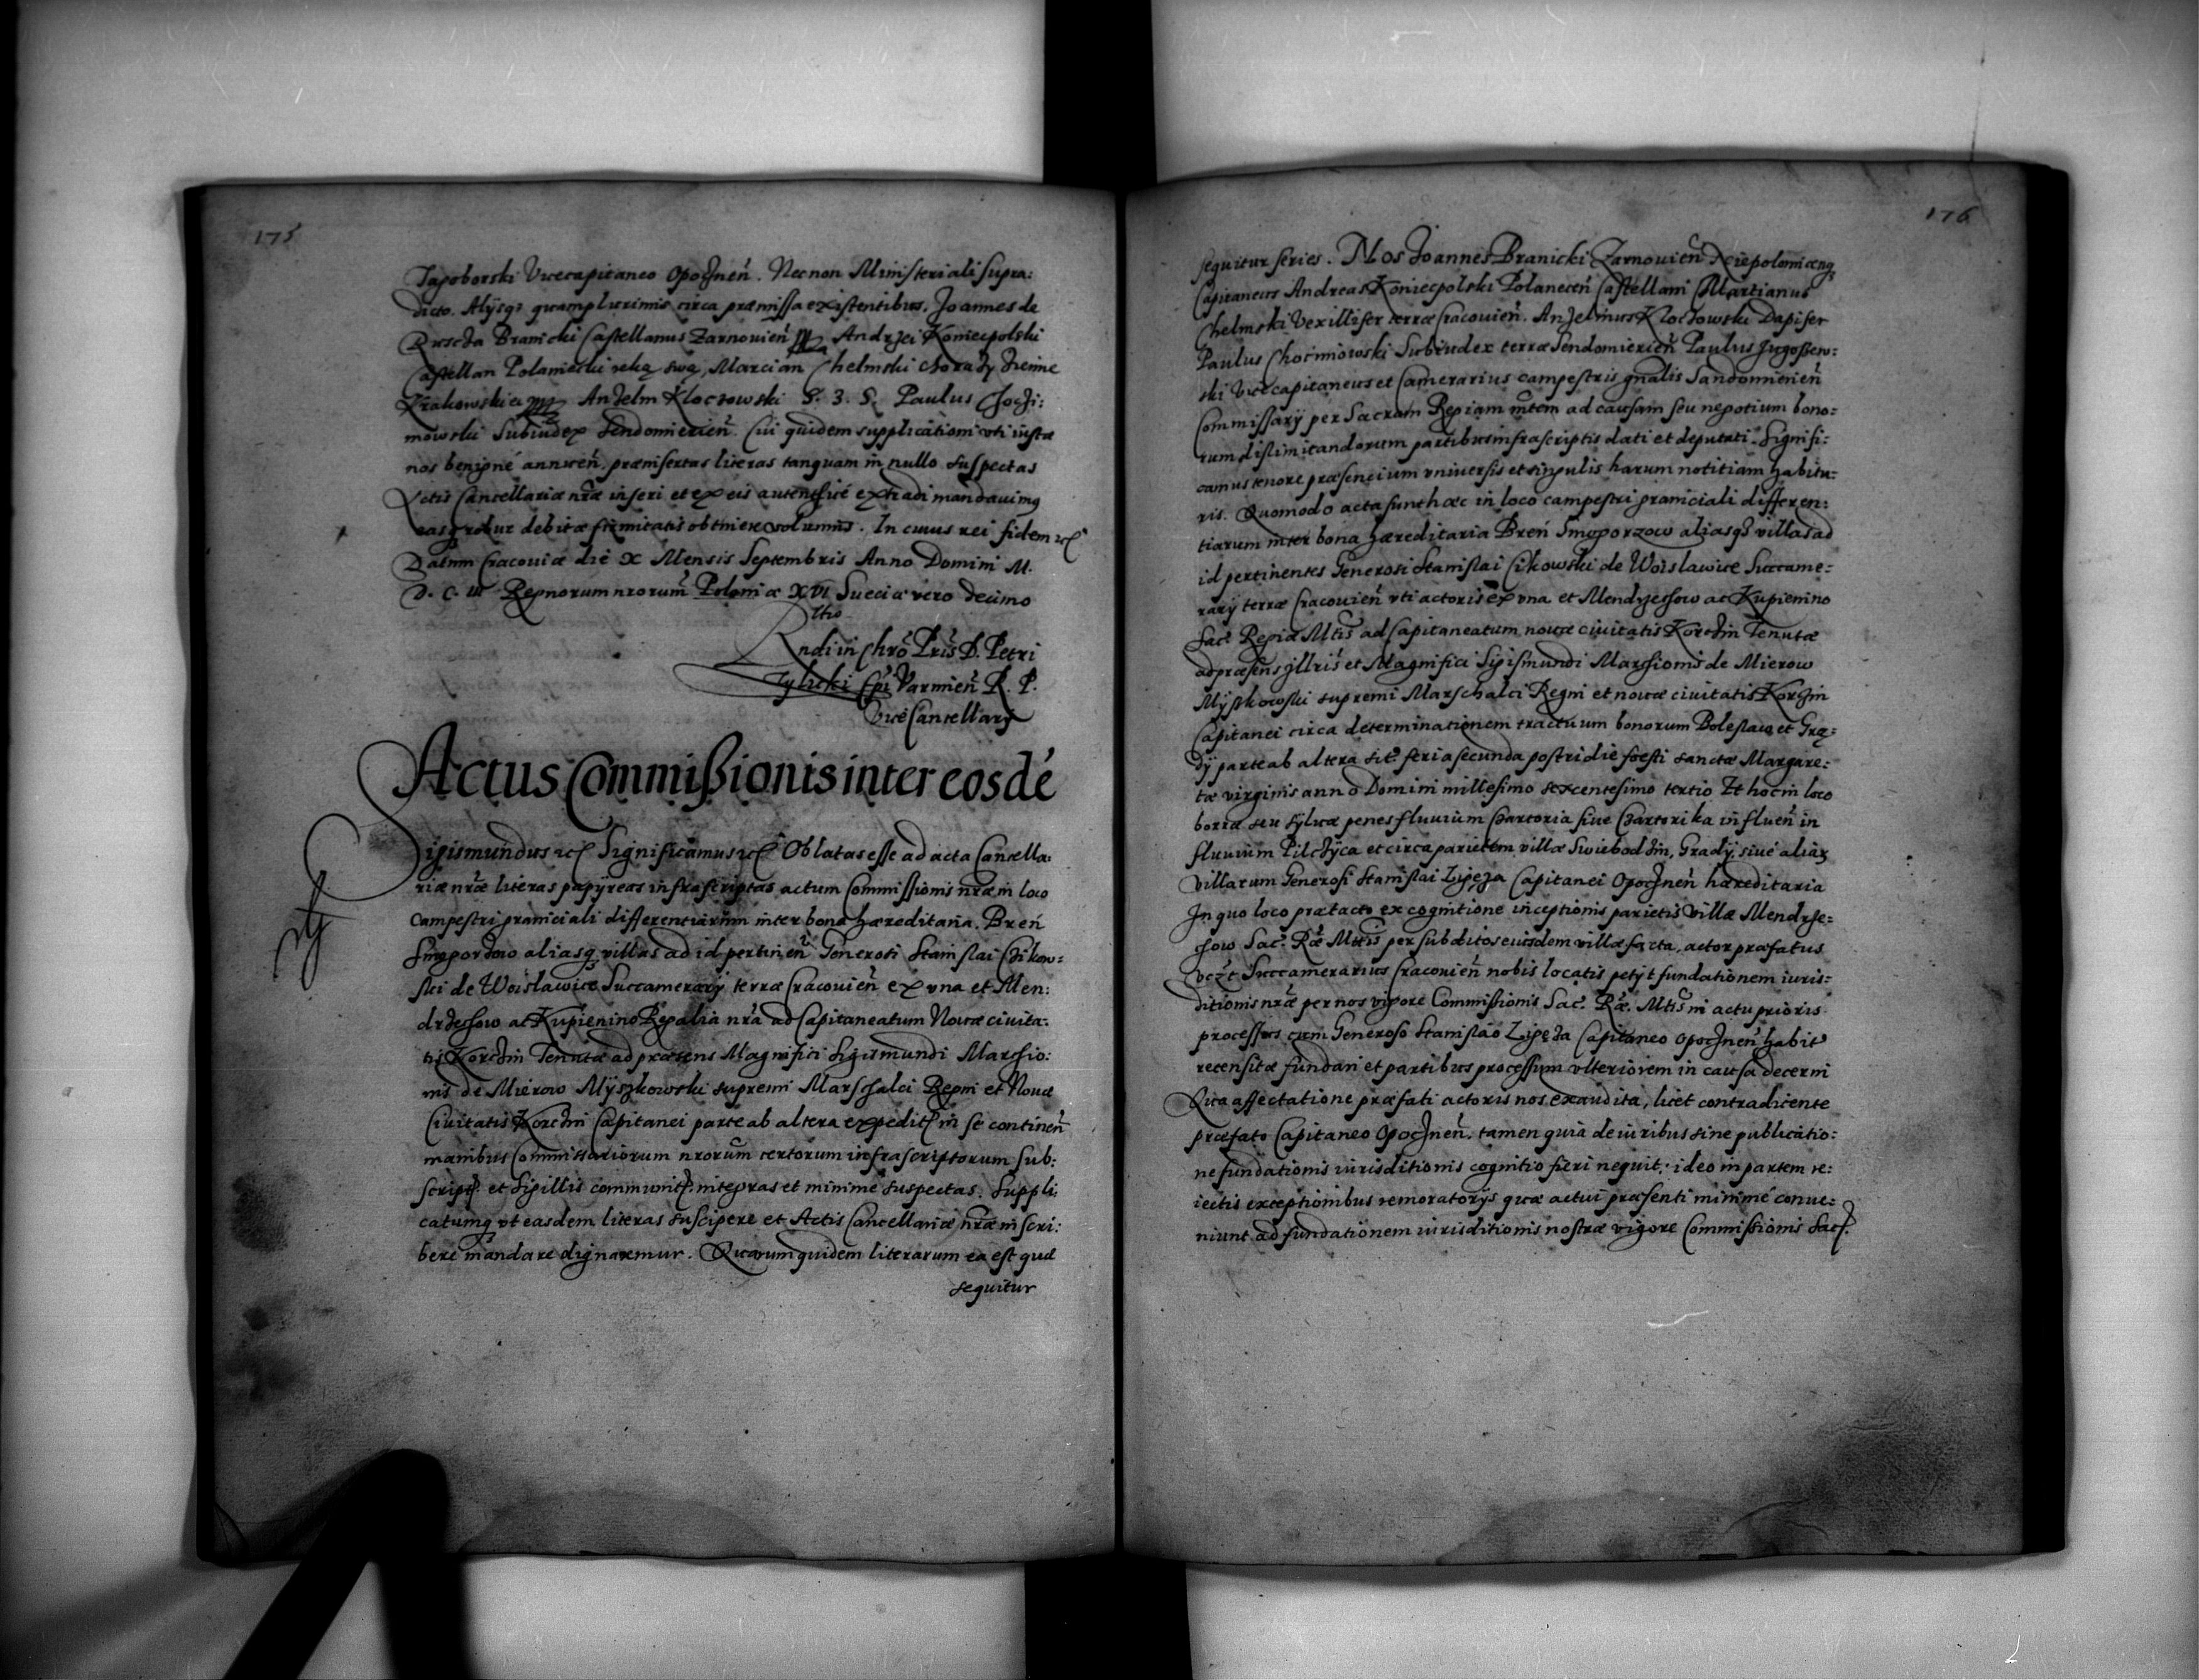 175
Japoborski Vicecapitaneo Opocznen̄. Necnon Ministeriali supra:
dicto. Alijsq3 quamplurimis circa præmissa existentibus. Joannes de
Ruscza Branicki Castellanus Zarnovien̄ Andrzei Koniecpolski
Castellan Polaniecki ręką swą, Marcian Chelmski chorązy ziemie
Krakowskiei Anzelm Kloczowski S. 3. S. Paulus Choczi:
mowski Subiudex Sendomierien̄. Cui quidem supplicationi uti iustæ
nos benigné annuen̄, præinsertas literas tanquam in nullo suspectas
Actis Cancellariæ nr̄æ inseri et ex eis autenthicé extradi mandavimq
easq3 robur debitæ firmitatis obtinere volumus. In cuius rei fidem etc̄
Datum Cracoviæ die X Mensis Septembris Anno Domini M.
D. C. III Regnorum nrorum̄ Poloniæ XVI Sueciæ vero decimo
Rndi in Chrō Pris̄ D. Petri
Tylicki Epi Varmien̄ R. P.
Vice Cancellarij
Actus Commißionis inter eosdē
Sigismundus etc̄ Significamus etc̄ Oblatas esse ad acta Cancella:
riæ nr̄æ literas papÿreas infrascriptas actum Commissionis nr̄æ in loco
campestri graniciali differentiarum inter bona hæreditaria. Bren̄
Smogorzow aliasq3 villas ad id pertinen̄ Generosi Stanislai Czikow:
ski de Woislawice Succamerarij terræ Cracovien̄ ex una et Men:
drzechow ac Kupienino Regalia nr̄a ad Capitaneatum Novæ civita:
tis Korczin Tenutæ ad præsens Magnifici Sigismundi Marchio:
nis de Mierow Mÿszkowski supremi Marschalci Regni et Novæ
Civitatis Korczin Capitanei parte ab altera expedit̄ in se continen̄
manibus Commissariorum nrorum̄ certorum infrascriptorum sub:
script̄. et Sigillis communit̄. integras et minimé suspectas. Suppli:
catumq3 ut easdem literas suscipere et Actis Cancellariæ nr̄æ inscri:
bere mandare dignaremur. Quarum quidem literarum ea est quæ
sequitur
176
sequitur series. Nos Joannes Branicki Zarnovien̄ Niepolomicenq3
Capitaneus Andreas Koniecpolski Polanecen̄ Castellani Martianus
Chelmski Vexillifer terræ Cracovien̄. Anzelmus Kloczowski Dapifer
Paulus Chocimowski Subiudex terræ Sendomierien̄ Paulus Jugoszew:
ski Vicecapitaneus et Camerarius campestris gn̄alis Sandomirien̄
Commissarij per Sacram Regiam mtem̄ ad causam seu negotium bono:
rum dislimitandorum partibus infrascriptis dati et deputati. Signifi:
camus tenore præsencium universis et singulis harum notitiam habitu:
ris. Quomodo acta sunt hæc in loco campestri graniciali differen:
tiarum inter bona hæreditaria Bren̄ Smogorzow aliasq3 villas ad
id pertinentes Generosi Stanislai Cikowski de Woislawice Succame:
rarij terræ Cracovien̄ uti actoris ex una et Mendrzechow ac Kupienino
Sac̄. Regiæ Mtis̄ ad Capitaneatum novæ civitatis Korczin Tenutæ
ad præsens Jllris̄ et Magnifici Sigismundi Marchionis de Mierow
Mÿszkowski supremi Marschalci Regni et novæ civitatis Korczin
Capitanei circa determinationem tractuum bonorum Boleslaw et Grą:
dÿ parte ab altera sit̄. feria secunda postridie foesti sanctæ Margare:
tæ virginis anno Domini millesimo sexcentesimo tertio Et hoc in loco
borra seu sÿluæ penes fluvium Czartoria sive Czartorika influen̄ in
fluvium Pilczÿca et circa parietem villæ Swiebodzin, Gradÿ, sivé aliar
villarum Generosi Stanislai Ligęza Capitanei Opocznen̄ hæreditaria
Jn quo loco prætacto ex cognitione inceptionis parietis Villæ Mendrze:
chow Sac̄. Rǣ Mttis per subditos eiusdem villæ facta, actor præfatus
Succamerarius Cracovien̄ nobis locatis petÿt fundationem iuris:
ditionis nr̄æ per nos vigore Commißionis Sac̄. Rǣ. Mtis̄ in actu prioris
processus cum Generoso Stanislao Ligęza Capitaneo Opocznen̄ habit̄
recensitæ fundari et partibus processum ulteriorem in causa decerni
Qua affectatione præfati actoris nos exaudita, licet contradicente
præfato Capitaneo Opocznen̄. tamen quia de iuribus sine publicatio:
ne fundationis iurisditionis cognitio fieri nequit; ideo in partem re:
iectis exceptionibus remoratorijs quæ actui præsenti minimé conve:
niunt ad fundationem iurisditionis nostræ vigore Commißionis Sac̄.